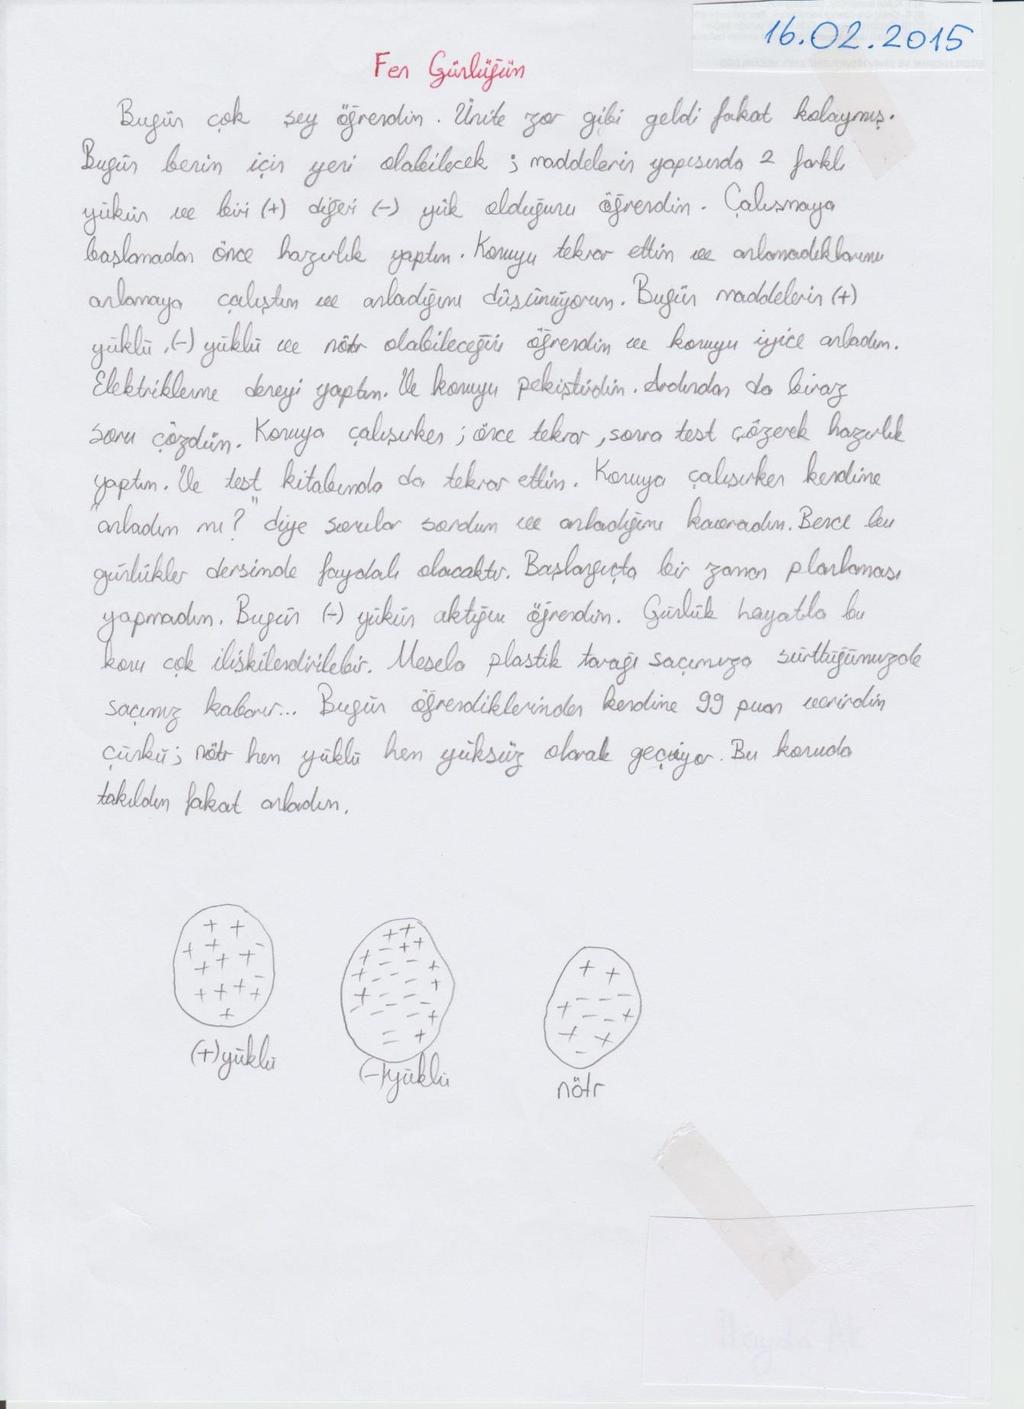 16.02.2015
Fen Günlüğüm
Bugün çok şey öğrendim. Ünite zor gibi geldi fakat kolaymış.
Bugün benim için yeni olabilecek ; maddelerin yapısında 2 farklı
yükün ve biri (+) diğeri (-) yük olduğunu öğrendim. Çalışmaya
başlamadan önce hazırlık yaptım. Konuyu tekrar ettim ve anlamadıklarımı
anlamaya çalıştım ve anladığımı düşünüyorum. Bugün maddelerin (+)
yüklü, (-) yüklü ve nötr olabileceğini öğrendim ve konuyu iyice anladım.
Elektriklenme deneyi yaptım. Ve konuyu pekiştirdim. Ardından da biraz
soru çözdüm. Konuya çalışırken ; önce tekrar, sonra test çözerek hazırlık
yaptım. Ve test kitabında da tekrar ettim. Konuya çalışırken kendime
"anladım mı?" diye sorular sordum ve anladığımı kavradım. Bence bu
günlükler dersimde faydalı olacaktır. Başlangıçta bir zaman planlaması
yapmadım. Bugün (-) yükün aktığını öğrendim. Günlük hayatla bu
konu çok ilişkilendirilebilir. Mesela plastik tarağı saçımıza sürttüğümüzde
saçımız kabarır... Bugün öğrendiklerimden kendime 99 puan verirdim
çünkü; nötr hem yüklü hem yüksüz olarak geçiyor. Bu konuda
takıldım fakat anladım.
(+)yüklü
(-)yüklü
nötr